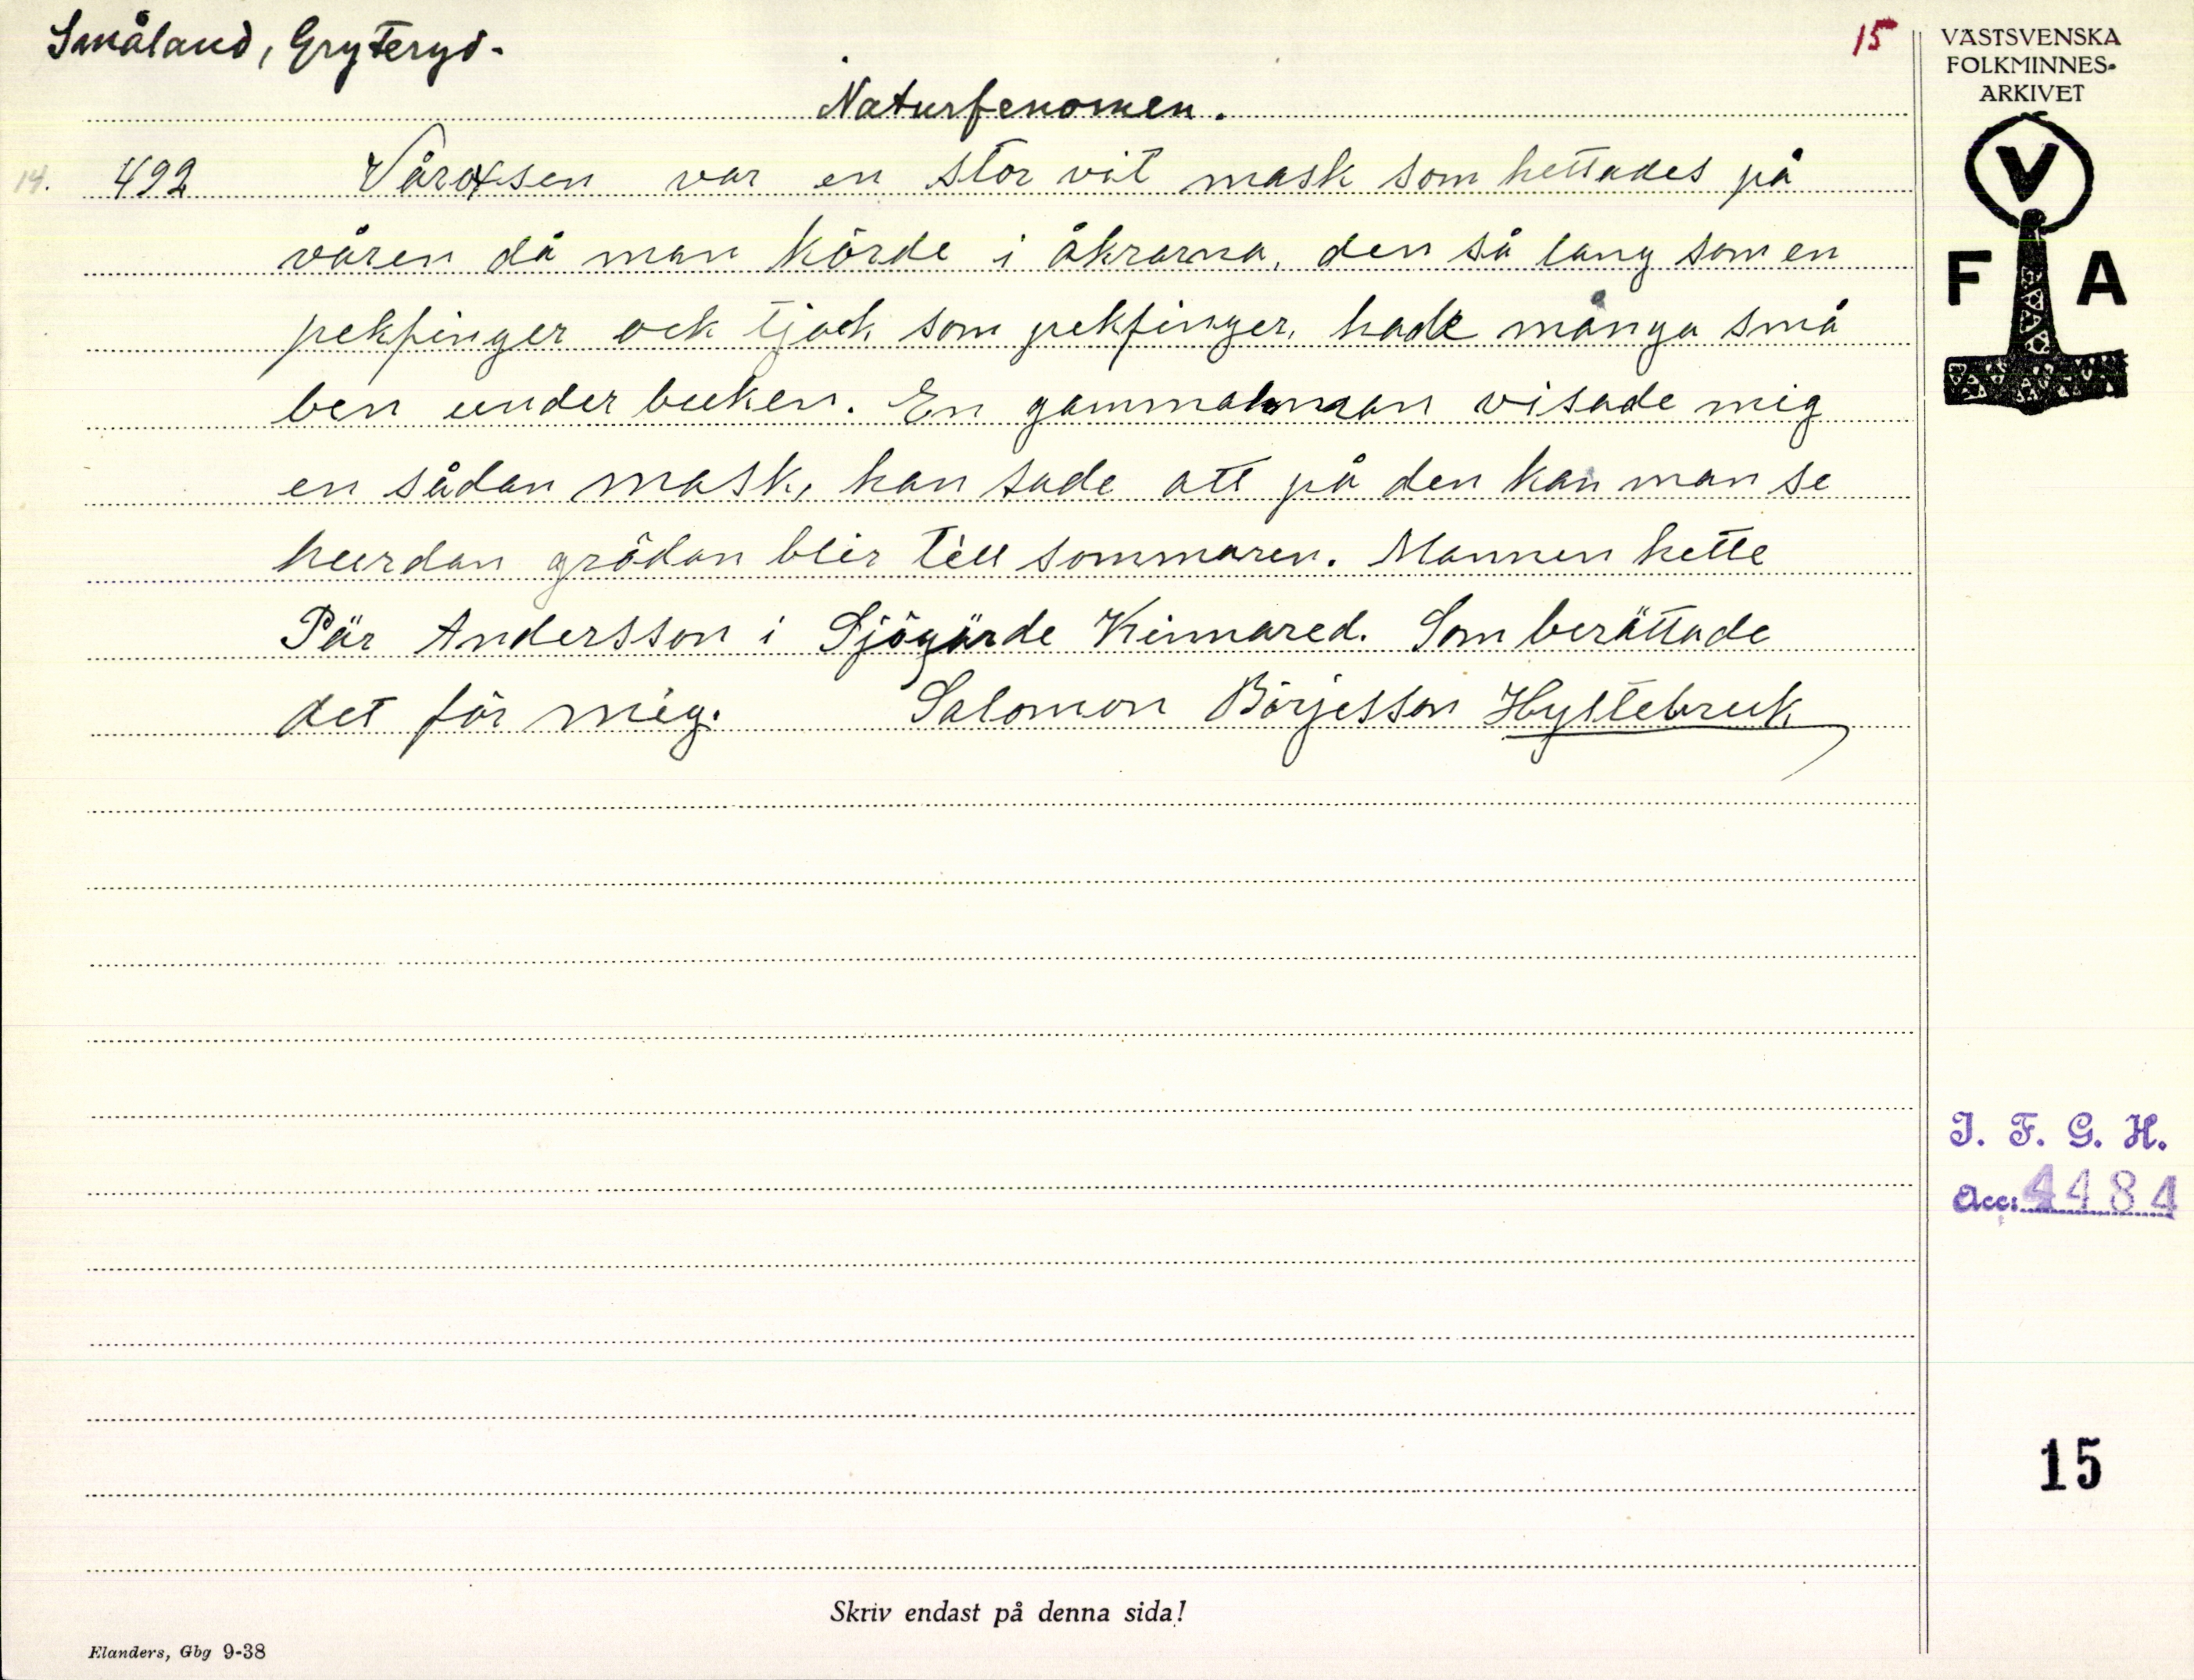 Småland, Gryteryd.
15
VÄSTSVENSKA
FOLKMINNES-
ARKIVET
V
F A
Naturfenomen.
14. 492 Våroxsen var en stor vit mask som hettades på
våren då man körde i åkrarna, den så lang som en
pekfinger ock tjock som pekfinger, hade många små
ben under buken. En gammalman visade mig
en sådan mask, han sade att på den kan man se
hurdan grödan blir till sommaren. Mannen hette
Pär Andersson i Sjögärde Kinnared. Som berättade
det för mig. Salomon Börjesson Hyltebruk
I. F. G. H.
Acc: 4484
15
Skriv endast på denna sida!
Elanders, Gbg 9-38